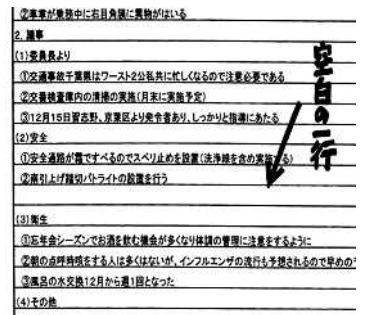 ②車掌が乗務中に右目角膜に異物がはいる
2. 議事
(1)委員長より
①交通事故千葉県はワースト2公私共に忙しくなるので注意必要である
②交番検査庫内の清掃の実施(月末に実施予定)
③12月15日習志野、京葉区より発令者あり、しっかりと指導にあたる
(2)安全
①安全通路が霜ですべるのでスベリ止めを設置(洗浄線を含め実施する)
②南引上げ踏切パトライトの設置を行う
空白の一行
(3)衛生
①忘年会シーズンでお酒を飲む機会が多くなり体調の管理に注意をするように
②朝の点呼時咳をする人は多くはないが、インフルエンザの流行も予想されるので早めの
③風呂の水交換12月から週1回となった
(4)その他